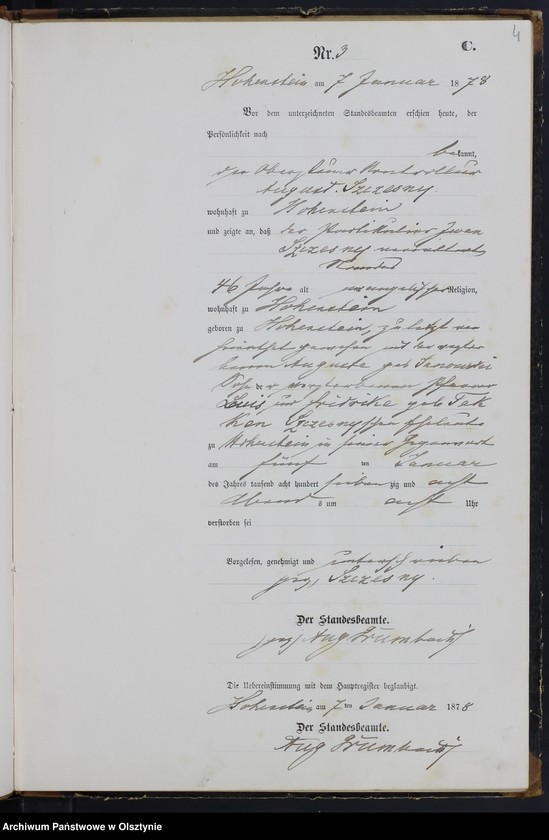 4
C.
Nr. 3
Hohenstein am 7 Januar 1878
Vor dem unterzeichneten Standesbeamten erschien heute, der
Persönlichkeit nach
bekannt,
der
August Szczesny.
wohnhaft zu Hohenstein
und zeigte an, daß der
Szczesny
46 Jahre alt evangelischer Religion,
wohnhaft zu Hohenstein
geboren zu Hohenstein, zuletzt ver
heirathet gewesen mit der verstor
benen Auguste geb Janowski
Sohn der verstorbenen Pfarrer
Louis und geb
Szczesnyschen Eheleute
zu Hohenstein in seiner Gegenwart
am fünf ten Januar
des Jahres tausend acht hundert siebenzig und acht
Abends um acht Uhr
verstorben sei
Vorgelesen, genehmigt und unterschrieben
gez, Szczesny.
Der Standesbeamte.
gez, Aug Grumbach
Die Uebereinstimmung mit dem Hauptregister beglaubigt.
Hohenstein am 7 ten Januar 1878
Der Standesbeamte.
Aug Grumbach
Archiwum Państwowe w Olsztynie